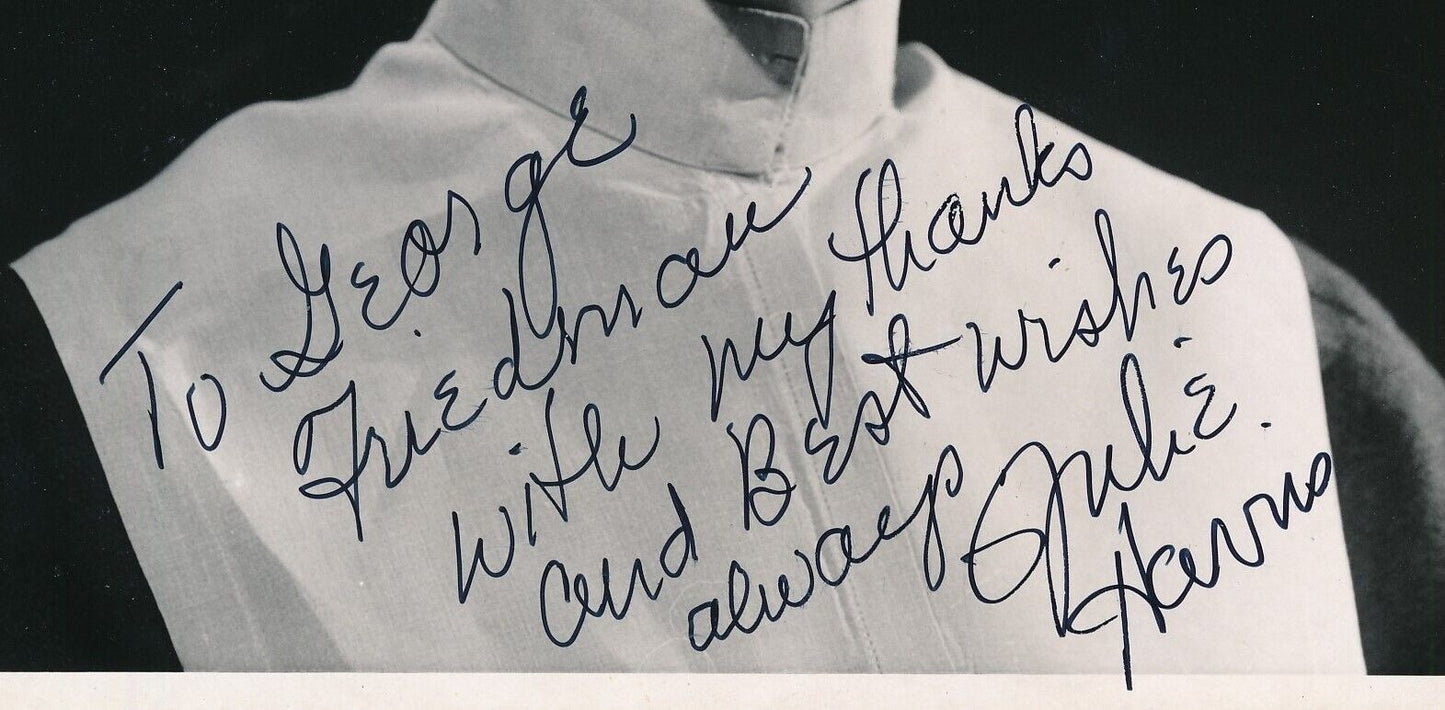 To George
Friedman
with my thanks
and Best wishes
always Julie.
Harris